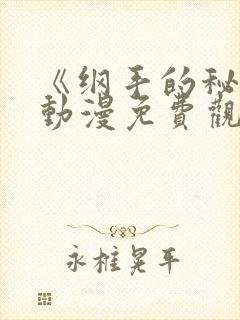 《纲手的秘
動漫免費觀
永樁晃平